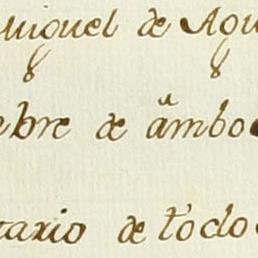 Miguel de Agu
ebre de ambo
tario de todo